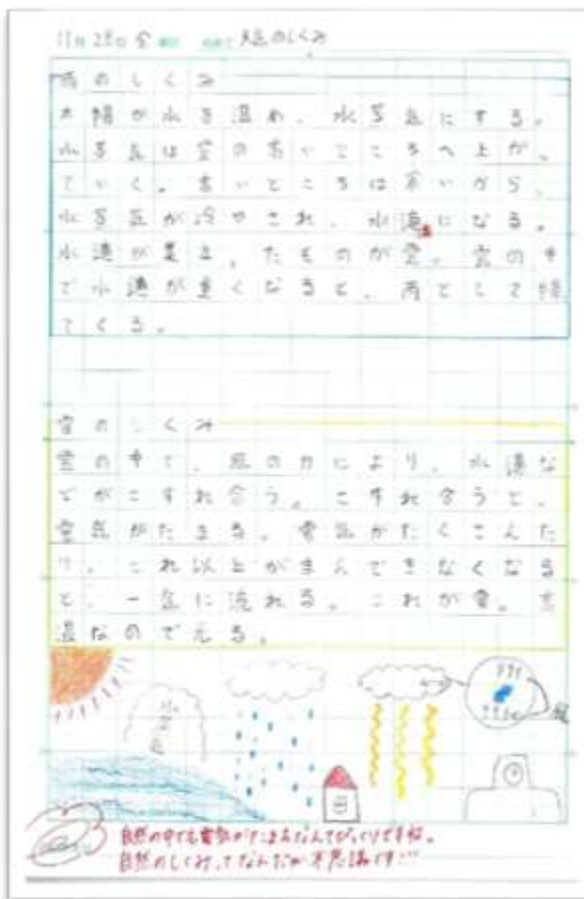 11月28日 金 天気のしくみ
雨のしくみ
太陽が水を温め、水蒸気にする。
水蒸気は空の高いところへ上がっ
ていく。高いところは寒いから、
水蒸気が冷やされ、水滴になる。
水滴が集まったものが雲。雲の中
で水滴が重くなると、雨として降
てくる。
雷のしくみ
雲の中で、風の力により、水滴な
どがこすれ合う。こすれ合うと、
電気がたまる。電気がたくさんた
り、これ以上がまんできなくなる
と、一気に流れる。これが雷。高
温なので光る。
自然の中でも電気がたまるなんてびっくりですね。
自然のしくみってなんだか不思議です…